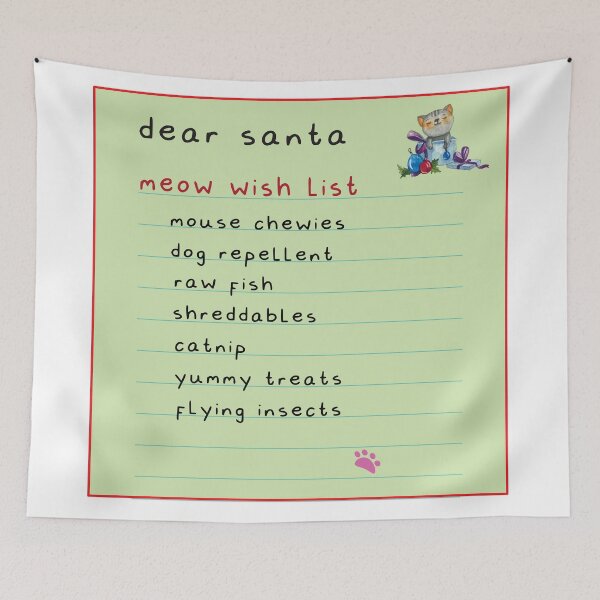 dear santa
meow wish list
mouse chewies
dog repellent
raw fish
shreddables
catnip
yummy treats
flying insects